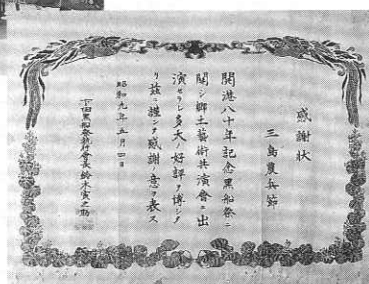 感謝狀
三島農兵節
開港八十年記念黒船祭ニ
関シ郷土藝術共演會ニ出
演セラレ多大ノ好評ヲ博シタ
リ茲ニ謹シテ感謝ノ意ヲ表ス
昭和九年五月四日
下田黒船祭執行會長鈴木寅之助